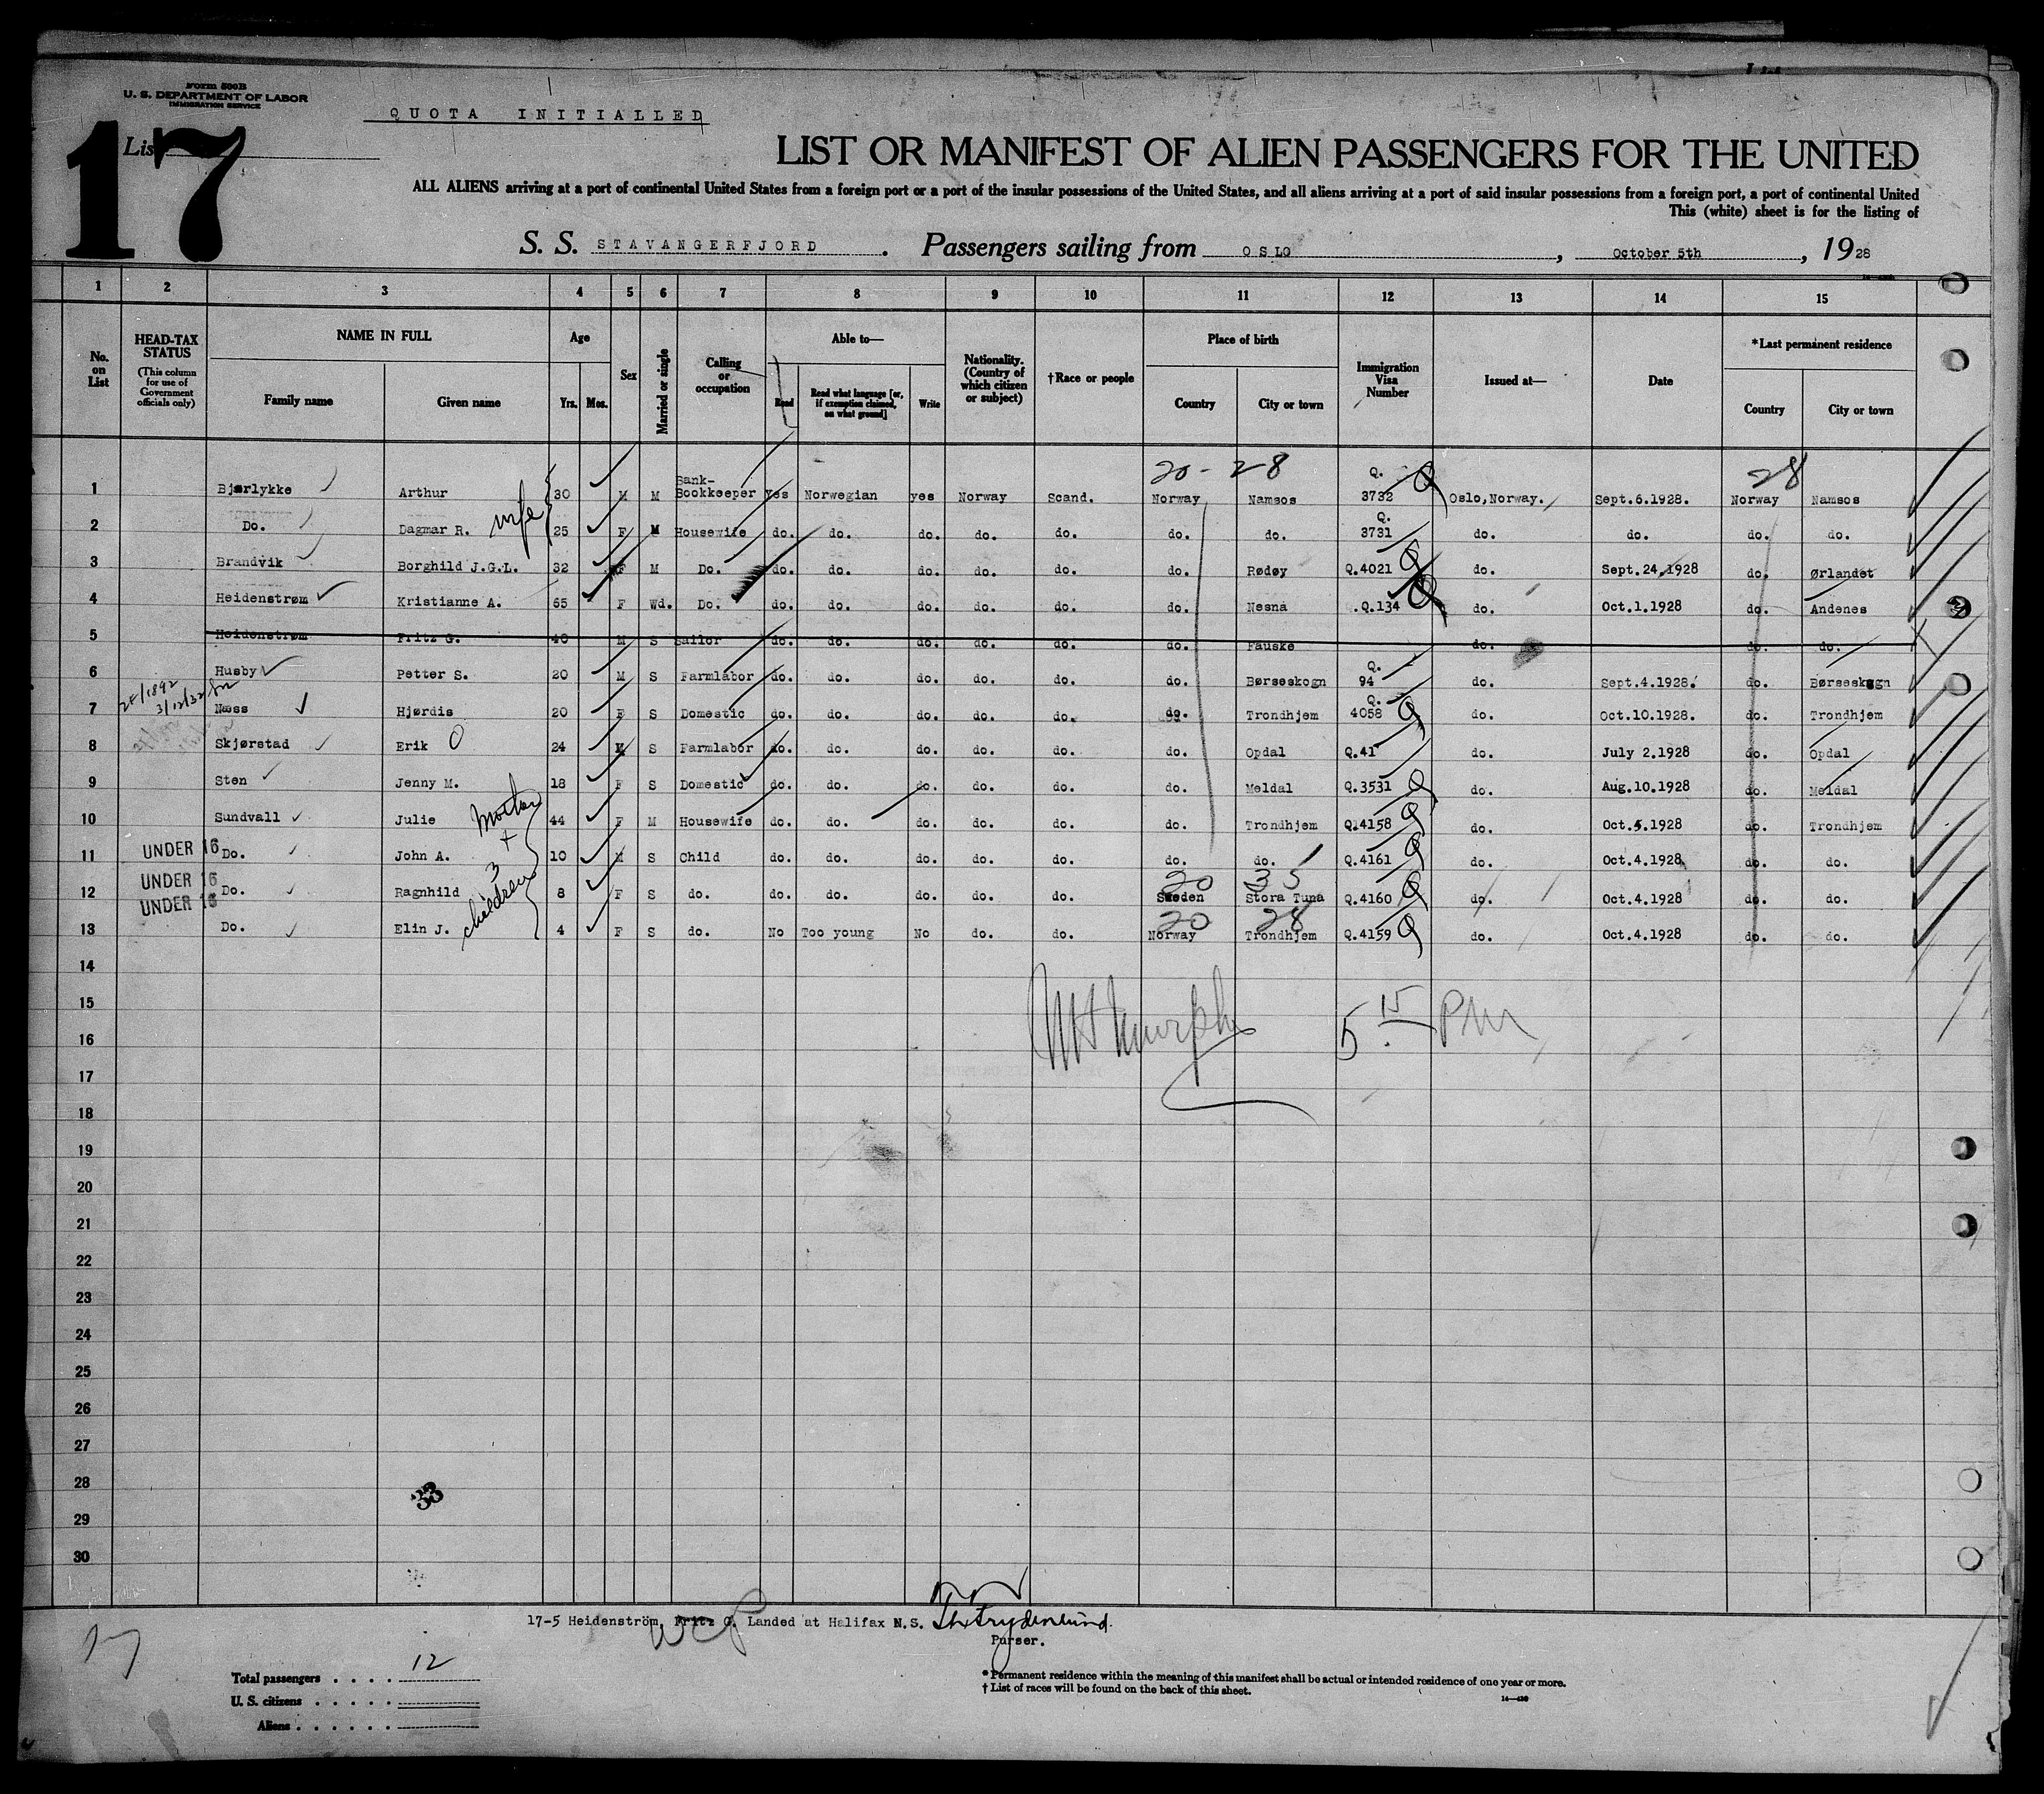 Form 500B
U. S. DEPARTMENT OF LABOR
IMMIGRATION SERVICE
QUOTA INITIALLED
17
List
LIST OR MANIFEST OF ALIEN PASSENGERS FOR THE UNITED
ALL ALIENS arriving at a port of continental United States from a foreign port or a port of the insular possessions of the United States, and all aliens arriving at a port of said insular possessions from a foreign port, a port of continental United
This (white) sheet is for the listing of
S. S. STAVANGERFJORD. Passengers sailing from OSLO, October 5th, 1928
1 2 3 4 5 6 7 8 9 10 11 12 13 14 15
No. on List
HEAD-TAX STATUS (This column for use of Government officials only)
NAME IN FULL Family name Given name
Age Yrs. Mos.
Sex
Married or single
Calling or occupation
Able to— Read Read what language [or, if exemption claimed, on what ground] Write
Nationality. (Country of which citizen or subject)
†Race or people
Place of birth Country City or town
Immigration Visa Number
Issued at—
Date
*Last permanent residence Country City or town
20 - 28 28
1 Bjørlykke Arthur 30 M M Bank-Bookkeeper yes Norwegian yes Norway Scand. Norway Namsos Q. 3732 Oslo, Norway. Sept.6.1928. Norway Namsos
wife
2 Do. Dagmar R. 25 F M Housewife do. do. do. do. do. do. do. Q. 3731 do. do. do. do.
3 Brandvik Borghild J.G.L. 32 F M Do. do. do. do. do. do. do. Rødøy Q.4021 do. Sept.24,1928 do. Ørlandet
4 Heidenstrøm Kristianne A. 65 F Wd. Do. do. do. do. do. do. do. Nesna Q.134 do. Oct.1.1928 do. Andenes
5 Heidenstrøm Fritz G. 40 M S Sailor do. do. do. do. do. do. Fauske do. do. do.
6 Husby Petter S. 20 M S Farmlabor do. do. do. do. do. do. Børseskogn Q. 94 do. Sept.4.1928. do. Børseskogn
3/12/32
7 Næss Hjørdis 20 F S Domestic do. do. do. do. do. do. Trondhjem Q. 4058 do. Oct.10.1928. do. Trondhjem
8 Skjørstad Erik 24 M S Farmlabor do. do. do. do. do. do. Opdal Q.41 do. July 2.1928 do. Opdal
9 Sten Jenny M. 18 F S Domestic do. do. do. do. do. do. Meldal Q.3531 do. Aug.10.1928 do. Meldal
10 Sundvall Julie 44 F M Housewife do. do. do. do. do. do. Trondhjem Q.4158 do. Oct.5.1928 do. Trondhjem
Mother + 3 children
11 UNDER 16 Do. John A. 10 M S Child do. do. do. do. do. do. do. Q.4161 do. Oct.4.1928 do. do.
20 35
12 UNDER 16 Do. Ragnhild 8 F S do. do. do. do. do. do. Sweden Stora Tuna Q.4160 do. Oct.4.1928 do. do.
UNDER 16
20 28
13 Do. Elin J. 4 F S do. No Too young No do. do. Norway Trondhjem Q.4159 do. Oct.4.1928 do. do.
14
15
5 15 PM
16
17
18
19
20
21
22
23
24
25
26
27
28
33
29
30
17-5 Heidenström, Fritz G. Landed at Halifax N.S.
Purser.
17
Total passengers . . . . 12
U. S. citizens . . . . .
Aliens . . . . . .
* Permanent residence within the meaning of this manifest shall be actual or intended residence of one year or more.
† List of races will be found on the back of this sheet.